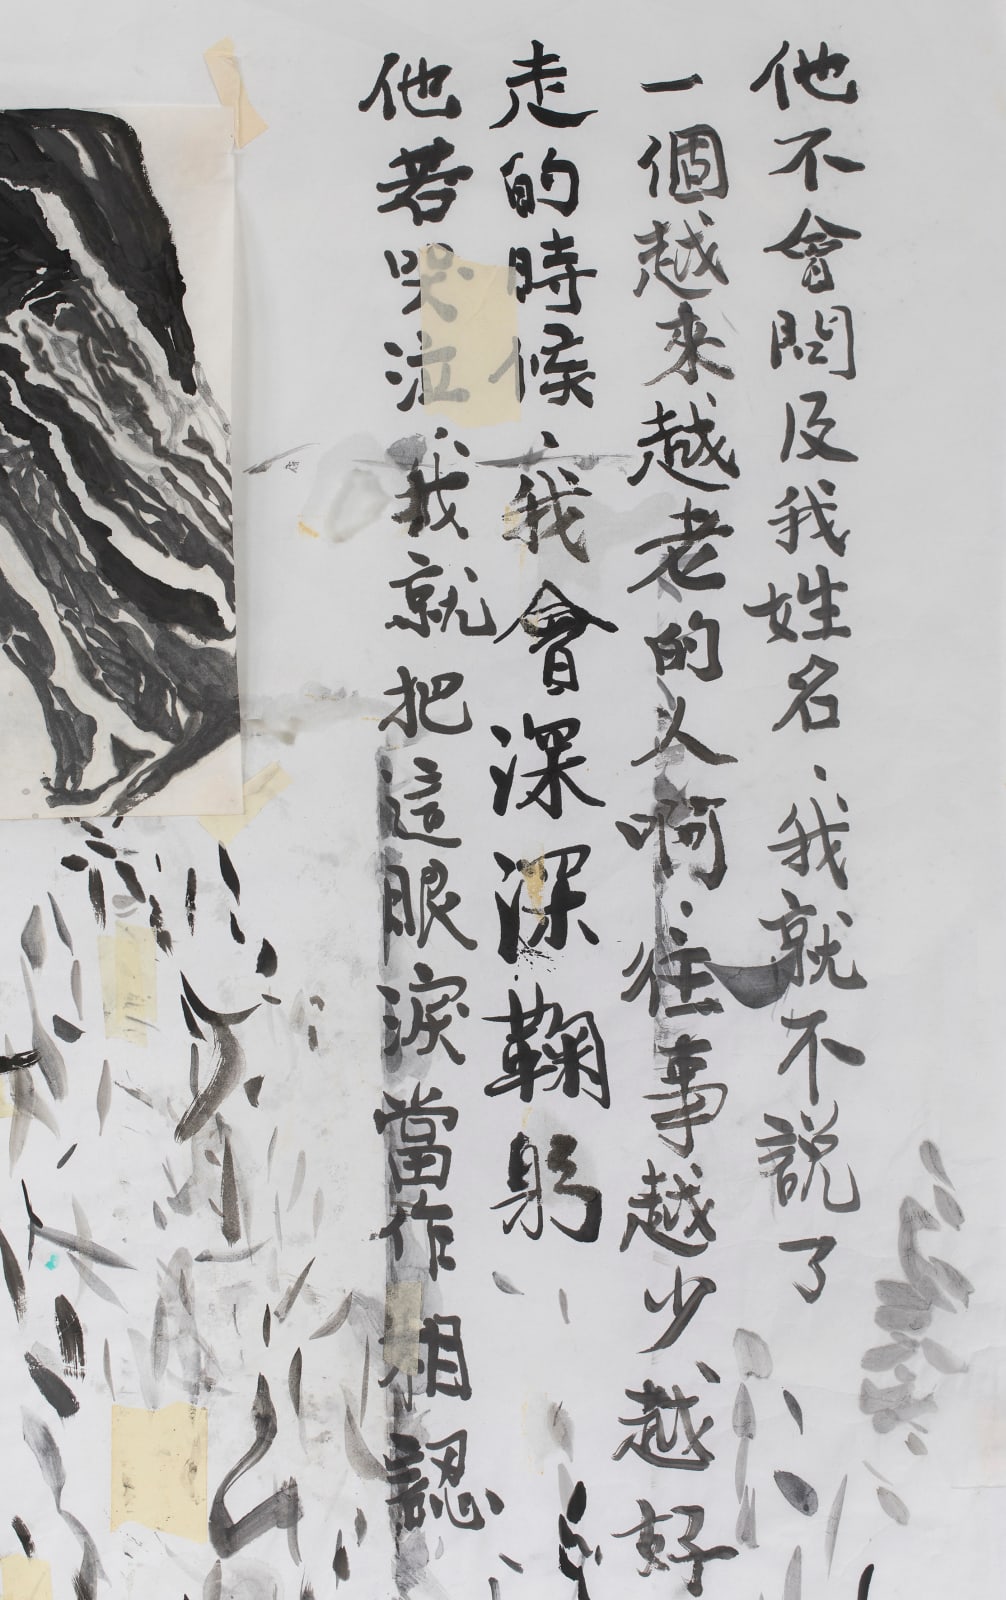 他不會問及我姓名、我就不說了
一個越來越老的人啊、往事越少、越好
走的時候、我會深深鞠躬
他若哭泣、我就把這眼淚當作相認